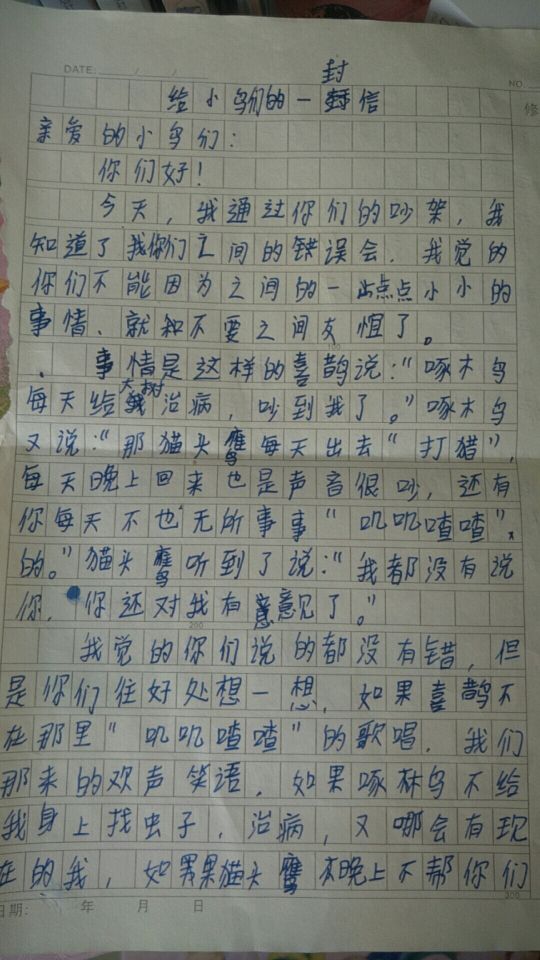 DATE: / /
NO.
封
给小鸟们的一封信
修
亲爱的小鸟们：
你们好！
今天，我通过你们的吵架，我
知道了我你们之间的错误会．我觉的
你们不能因为之间的一点点小小的
事情、就和不要之间友惧了。
100
．事情是这样的喜鹊说：“啄木鸟
大树
每天给治病，吵到我了。”啄木鸟
又说：“那猫头鹰每天出去“打猎”，
每天晚上回来也是声音很吵，还有
你每天不也无所事事“叽叽喳喳”、
的。”猫头鹰听到了说：“我都没有说
你．你还对我有意意见了。”
200
我觉的你们说的都没有错，但
是你们往好处想一想．如果喜鹊不
在那里“叽叽喳喳”的歌唱．我们
那来的欢声笑语．如果啄林鸟不给
我身上找虫子．治病，又哪会有现
在的我，如果猫头鹰晚上不帮你们
300
日期： 年 月 日